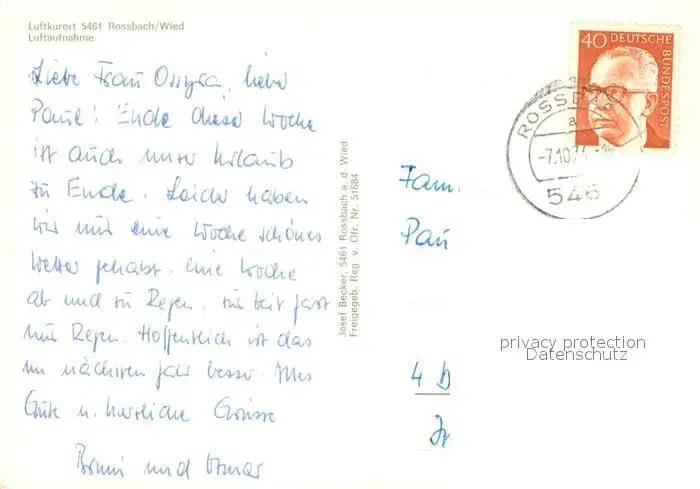 Luftkurort 5461 Rossbach/Wied
Luftaufnahme
Liebe Frau Ossyra, lieber
Paul! Ende dieser Woche
ist auch unser Urlaub
zu Ende. Leider haben
wir nur eine Woche schönes
Wetter gehabt. eine Woche
ab und zu Regen. zur Zeit fast
nur Regen. Hoffentlich ist das
im nächsten Jahr besser. Alles
Gute u. herzliche Grüsse
und
Josef Becker, 5461 Rossbach a. d. Wied
Freigegeb. Reg. v. Ofr. Nr. 51684
40 DEUTSCHE BUNDESPOST
ROSSBA
a
-7.10.74-1
546
Fam.
Pau
4 D
privacy protection
Datenschutz